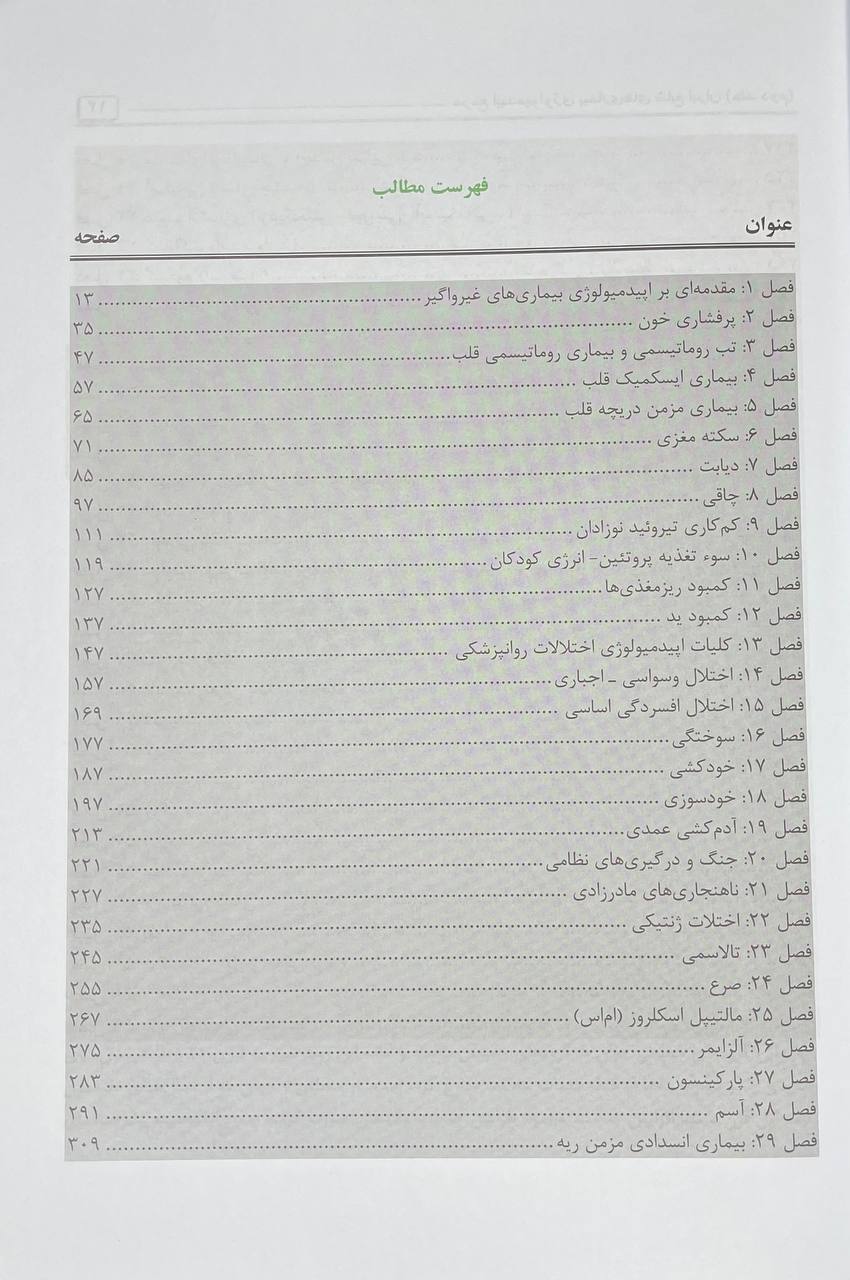 فهرست مطالب
عنوان صفحه
فصل ۱: مقدمه‌ای بر اپیدمیولوژی بیماری‌های غیرواگیر ۱۳
فصل ۲: پرفشاری خون ۳۵
فصل ۳: تب روماتیسمی و بیماری روماتیسمی قلب ۴۷
فصل ۴: بیماری ایسکمیک قلب ۵۷
فصل ۵: بیماری مزمن دریچه قلب ۶۵
فصل ۶: سکته مغزی ۷۱
فصل ۷: دیابت ۸۵
فصل ۸: چاقی ۹۷
فصل ۹: کم‌کاری تیروئید نوزادان ۱۱۱
فصل ۱۰: سوء تغذیه پروتئین- انرژی کودکان ۱۱۹
فصل ۱۱: کمبود ریزمغذی‌ها ۱۲۷
فصل ۱۲: کمبود ید ۱۳۷
فصل ۱۳: کلیات اپیدمیولوژی اختلالات روانپزشکی ۱۴۷
فصل ۱۴: اختلال وسواسی ـ اجباری ۱۵۷
فصل ۱۵: اختلال افسردگی اساسی ۱۶۹
فصل ۱۶: سوختگی ۱۷۷
فصل ۱۷: خودکشی ۱۸۷
فصل ۱۸: خودسوزی ۱۹۷
فصل ۱۹: آدم‌کشی عمدی ۲۱۳
فصل ۲۰: جنگ و درگیری‌های نظامی ۲۲۱
فصل ۲۱: ناهنجاری‌های مادرزادی ۲۲۷
فصل ۲۲: اختلات ژنتیکی ۲۳۵
فصل ۲۳: تالاسمی ۲۴۵
فصل ۲۴: صرع ۲۵۵
فصل ۲۵: مالتیپل اسکلروز (ام‌اس) ۲۶۷
فصل ۲۶: آلزایمر ۲۷۵
فصل ۲۷: پارکینسون ۲۸۳
فصل ۲۸: آسم ۲۹۱
فصل ۲۹: بیماری انسدادی مزمن ریه ۳۰۹